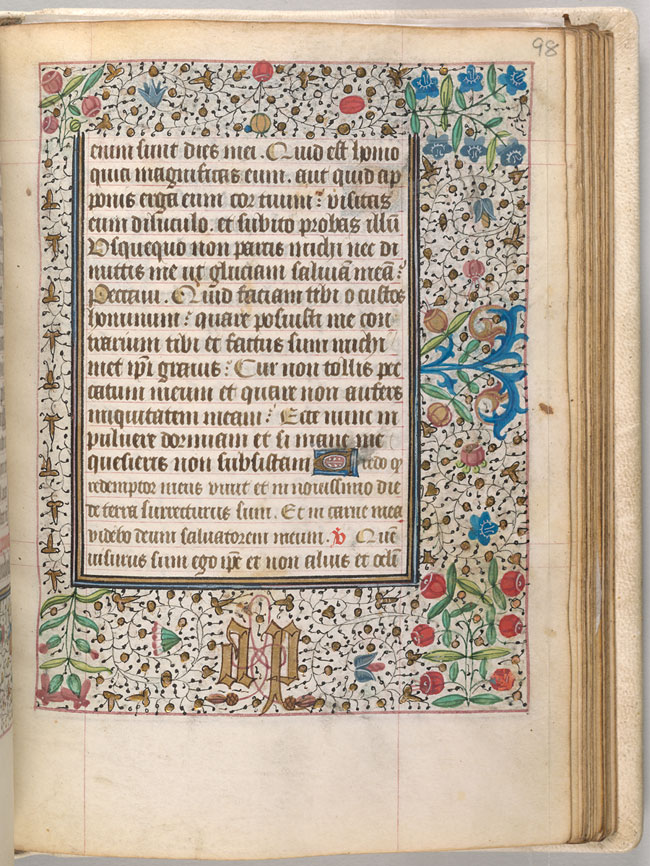 98
enim sunt dies mei. Quid est homo
quia magnificas eum. aut quid ap
ponis erga eum cor tuum: visitas
eum diluculo. et subito probas illū
Usquequo non parcis michi nec di
mittis me ut gluciam salivā meā:
Peccavi. Quid faciam tibi o custos
hominum: quare posuisti me con
trarium tibi et factus sum michi
met ip̄i gravis: Cur non tollis pec
catum meum et quare non aufers
iniquitatem meam: Ecce nunc in
pulvere dormiam et si mane me
quesieris non subsistam Credo q
redemptor meus vivit et in novissimo die
de terra surrecturus sum. Et in carne mea
videbo deum salvatorem meum. v̄ Quē
visurus sum ego ip̄e et non alius et
a p